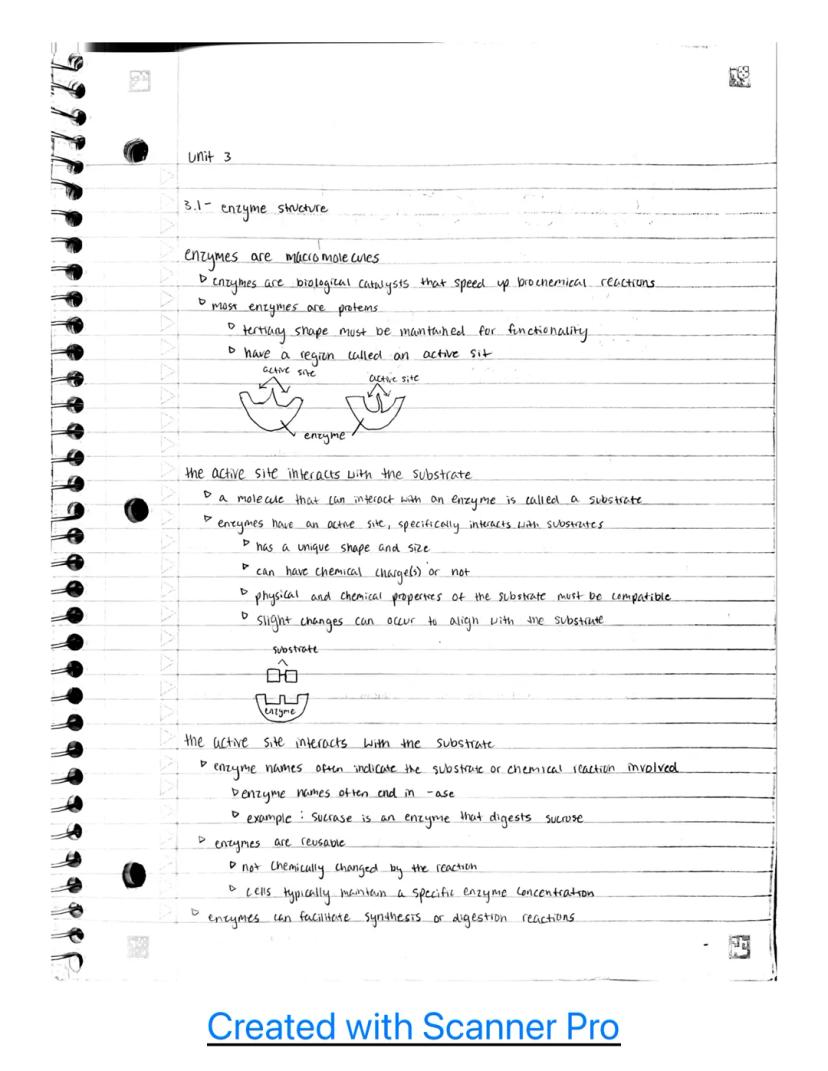 Unit 3
3.1- enzyme structure
enzymes are macromolecules
▷ enzymes are biological catalysts that speed up biochemical reactions
▷ most enzymes are proteins
▷ tertiary shape must be maintained for functionality
▷ have a region called an active sit
active site active site
enzyme
the active site interacts with the substrate
▷ a molecule that can interact with an enzyme is called a substrate
▷ enzymes have an active site, specifically interacts with substrates
▷ has a unique shape and size
▷ can have chemical charge(s) or not
▷ physical and chemical properties of the substrate must be compatible
▷ slight changes can occur to align with the substrate
substrate
enzyme
the active site interacts with the substrate
▷ enzyme names often indicate the substrate or chemical reaction involved
▷ enzyme names often end in -ase
▷ example : sucrase is an enzyme that digests sucrose
▷ enzymes are reusable
▷ not chemically changed by the reaction
▷ cells typically maintain a specific enzyme concentration
▷ enzymes can facilitate synthesis or digestion reactions
Created with Scanner Pro